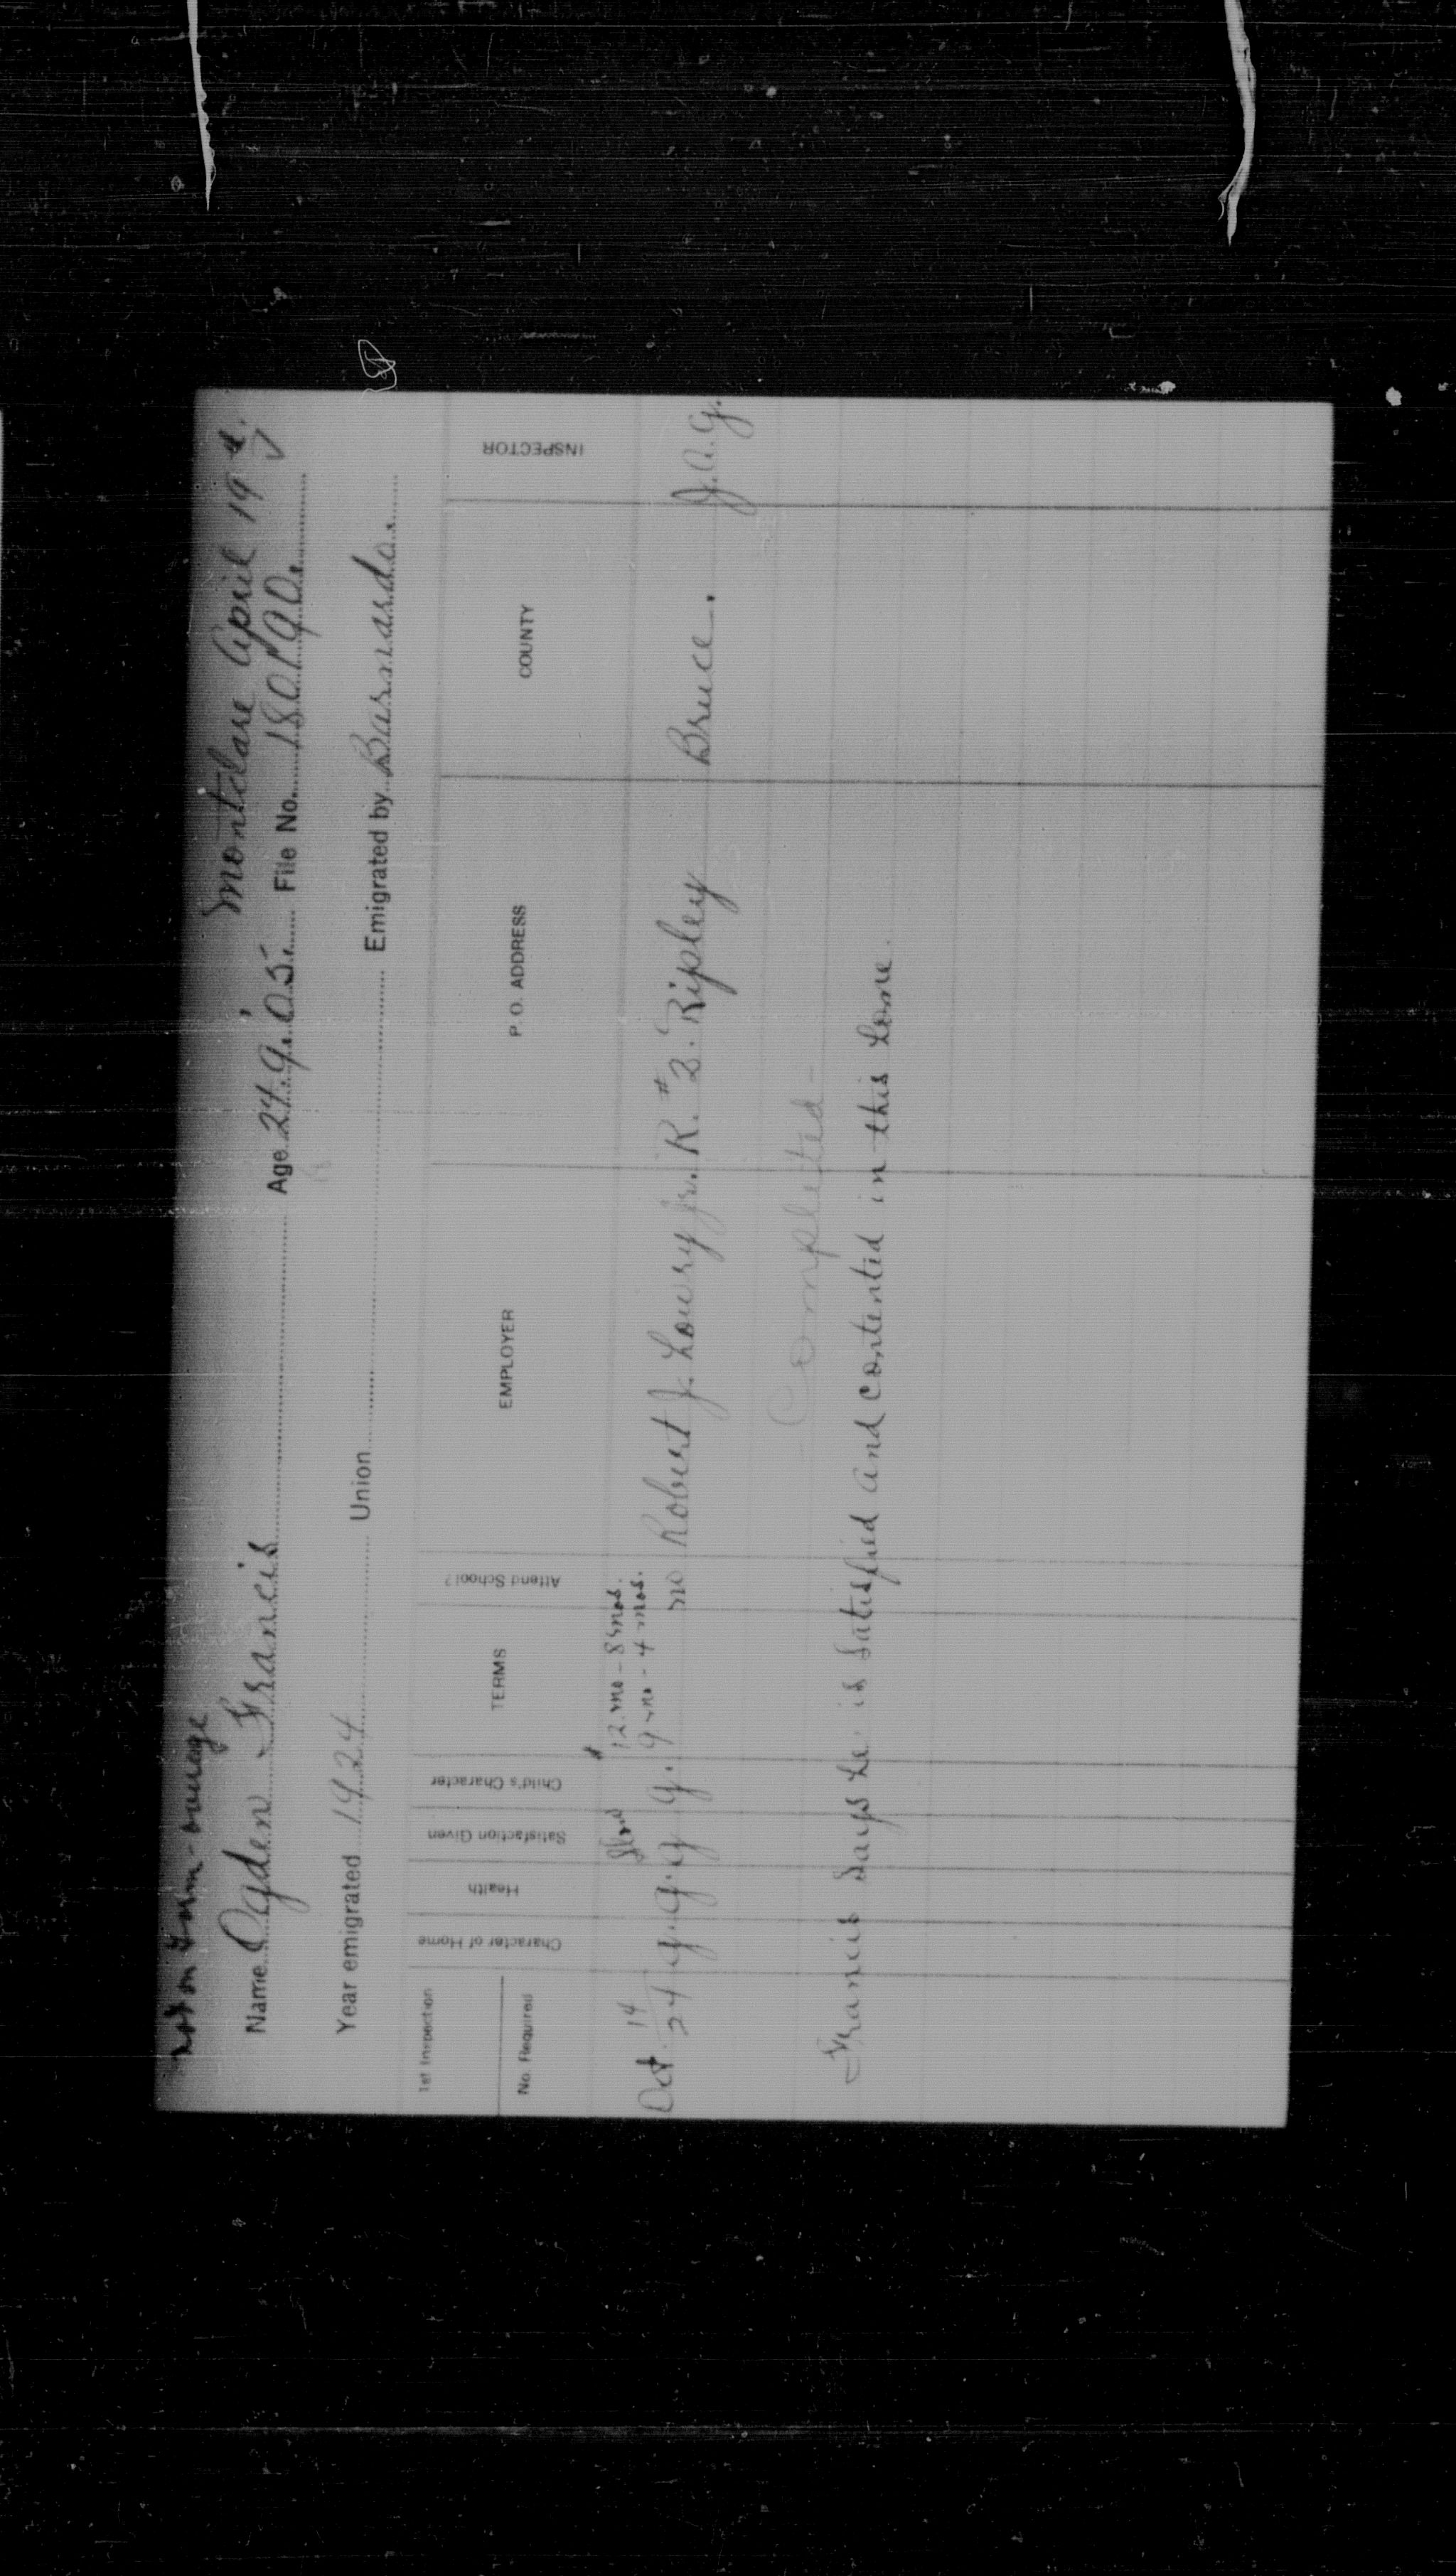 Montclare April 19
Name Ogden Francis Age 24.9.05. File No. 180190.
Year emigrated 1924 Union Emigrated by Barnardo.
1st Inspection
No. Required
Character of Home
Health
Satisfaction Given
Child's Character
TERMS
Attend School?
EMPLOYER
P. O. ADDRESS
COUNTY
INSPECTOR
Slow $12. mo - 8 mos.
9 mo - 4 mos.
Oct. 14/24 g. g. g g. no Robert J. Lowry Jr. R. # 2. Ripley Bruce. J.A.G.
Completed -
Francis says he is satisfied and contented in this home.